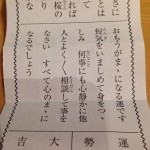 さに
とは
桜の
な
おもうがまゝになる運です
短気をいましめて身をつゝ
しみ 何事にも心静かに他
人とよくゝ相談して事を
なさい すべて心のまゝに
なるでしょう
運勢大吉